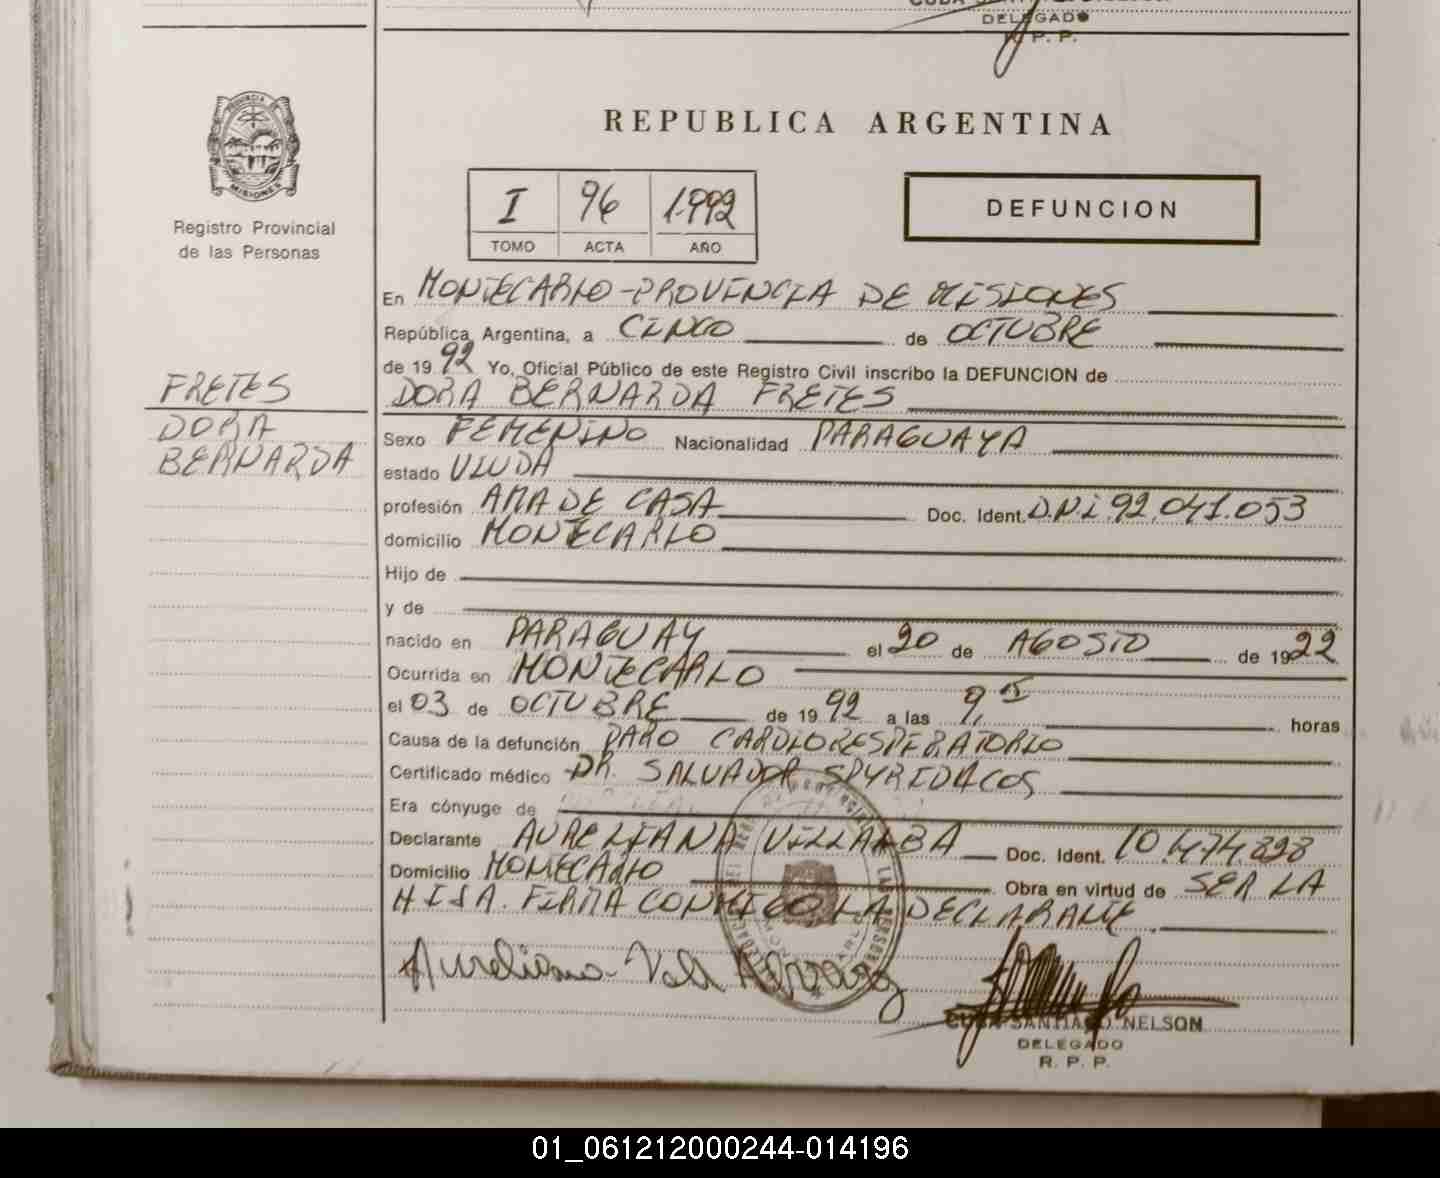 DELEGADO
R. P. P.
PROVINCIA DE
MISIONES
Registro Provincial
de las Personas
REPUBLICA ARGENTINA
I 96 1.992
TOMO ACTA AÑO
DEFUNCION
En MONTECARLO - PROVINCIA DE MISIONES
República Argentina, a CINCO de OCTUBRE
de 1992 Yo, Oficial Público de este Registro Civil inscribo la DEFUNCION de
DORA BERNARDA FRETES
FRETES
DORA
BERNARDA
Sexo FEMENINO Nacionalidad PARAGUAYA
estado VIUDA
profesión AMA DE CASA Doc. Ident. D.N.I. 92.041.053
domicilio MONTECARLO
Hijo de
y de
nacido en PARAGUAY el 20 de AGOSTO de 1922
Ocurrida en MONTECARLO
el 03 de OCTUBRE de 1992 a las 9, horas
Causa de la defunción PARO CARDIORESPIRATORIO
Certificado médico DR. SALVADOR SPYRIDACOS
Era cónyuge de
Declarante AURELIANA VILLALBA Doc. Ident. 10.474.828
Domicilio MONTECARLO Obra en virtud de SER LA
HIJA. FIRMA CONMIGO LA DECLARANTE
Aureliana
CUBA SANTIAGO NELSON
DELEGADO
R. P. P.
01_061212000244-014196